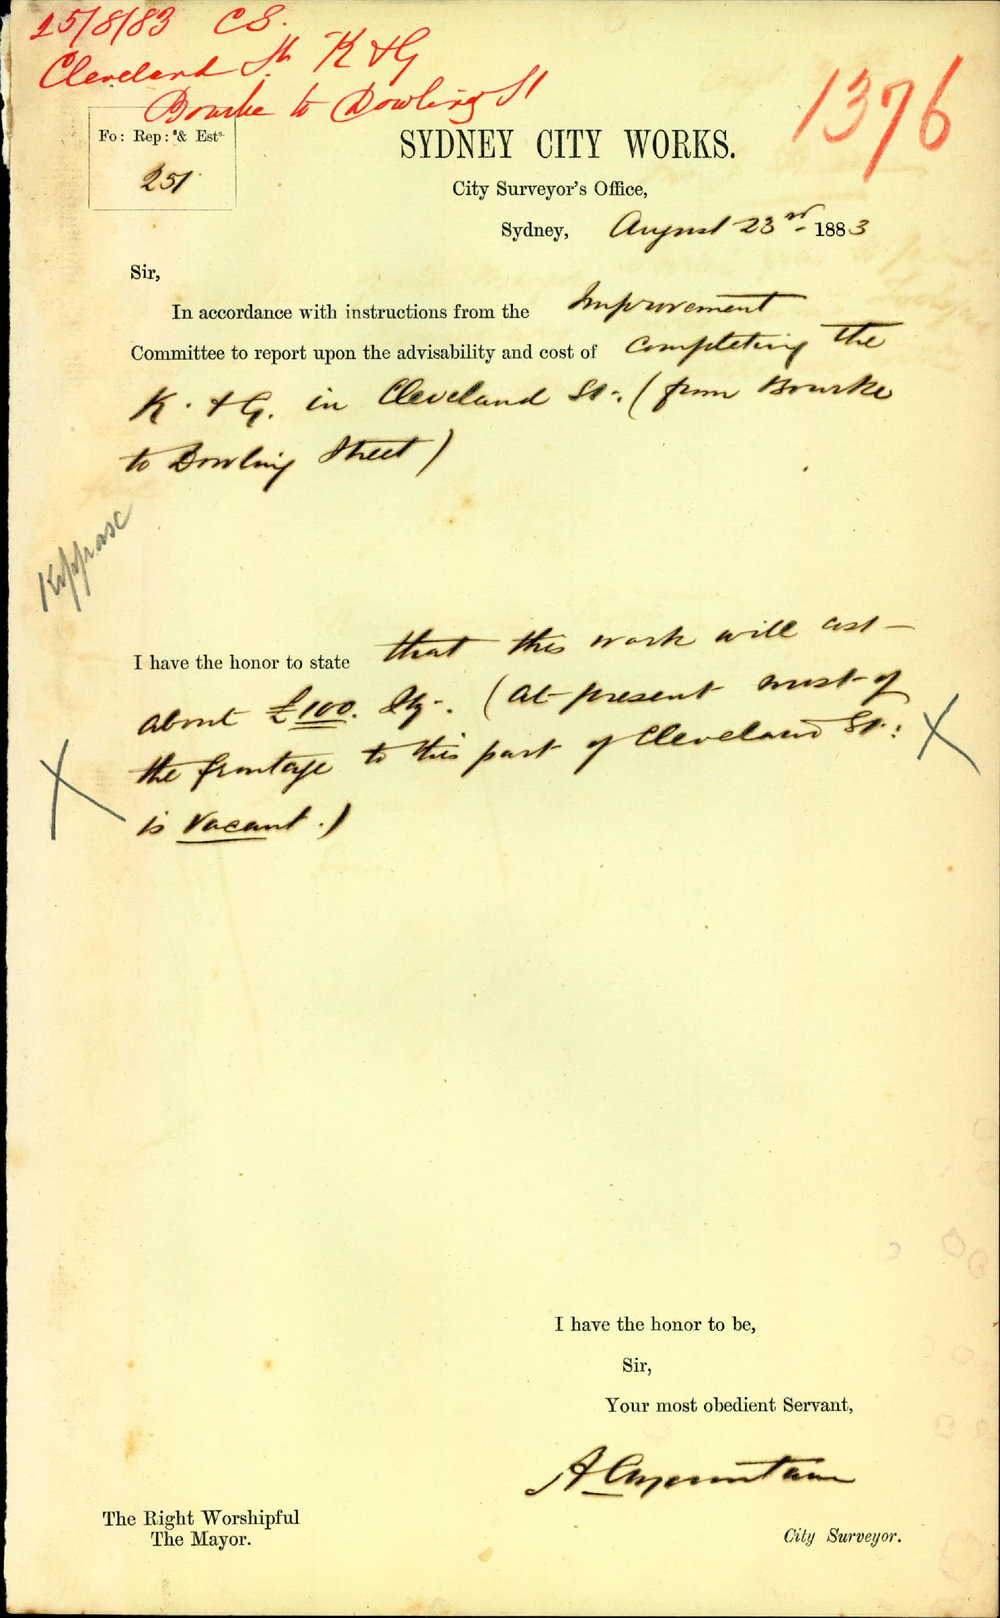 25/8/83 CS.
Cleveland St K & G
Bourke to Dowling St
1376
Fo: Rep: & Ests.
251
SYDNEY CITY WORKS.
City Surveyor's Office,
Sydney, August 23rd 1883
Sir,
In accordance with instructions from the Improvement
Committee to report upon the advisability and cost of completing the
K. & G. in Cleveland St: (from Bourke
to Dowling Street)
I have the honor to state that this work will cost
about £100. Stg. (at present most of
the frontage to this part of Cleveland St:
is vacant.)
X
X
I have the honor to be,
Sir,
Your most obedient Servant,
The Right Worshipful
The Mayor.
City Surveyor.